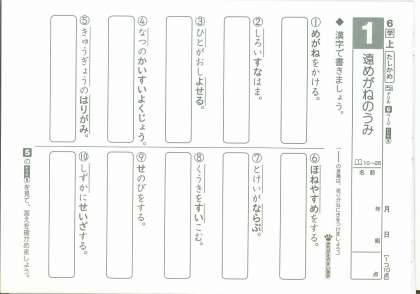 6
学 上
たしかめ
1
遠めがねのうみ
10〜26
名前
月
日
点
◆ 漢字で書きましょう。
①めがねをかける。
②しろいすなはま。
③ひとがおしよせる。
④なつのかいすいよくじょう。
⑤きゅうぎょうのはりがみ。
⑥ほねやすめをする。
⑦とけいがならぶ。
⑧くうきをすいこむ。
⑨せのびをする。
⑩しずかにせいざする。
5の
を見て、答えを確かめましょう。